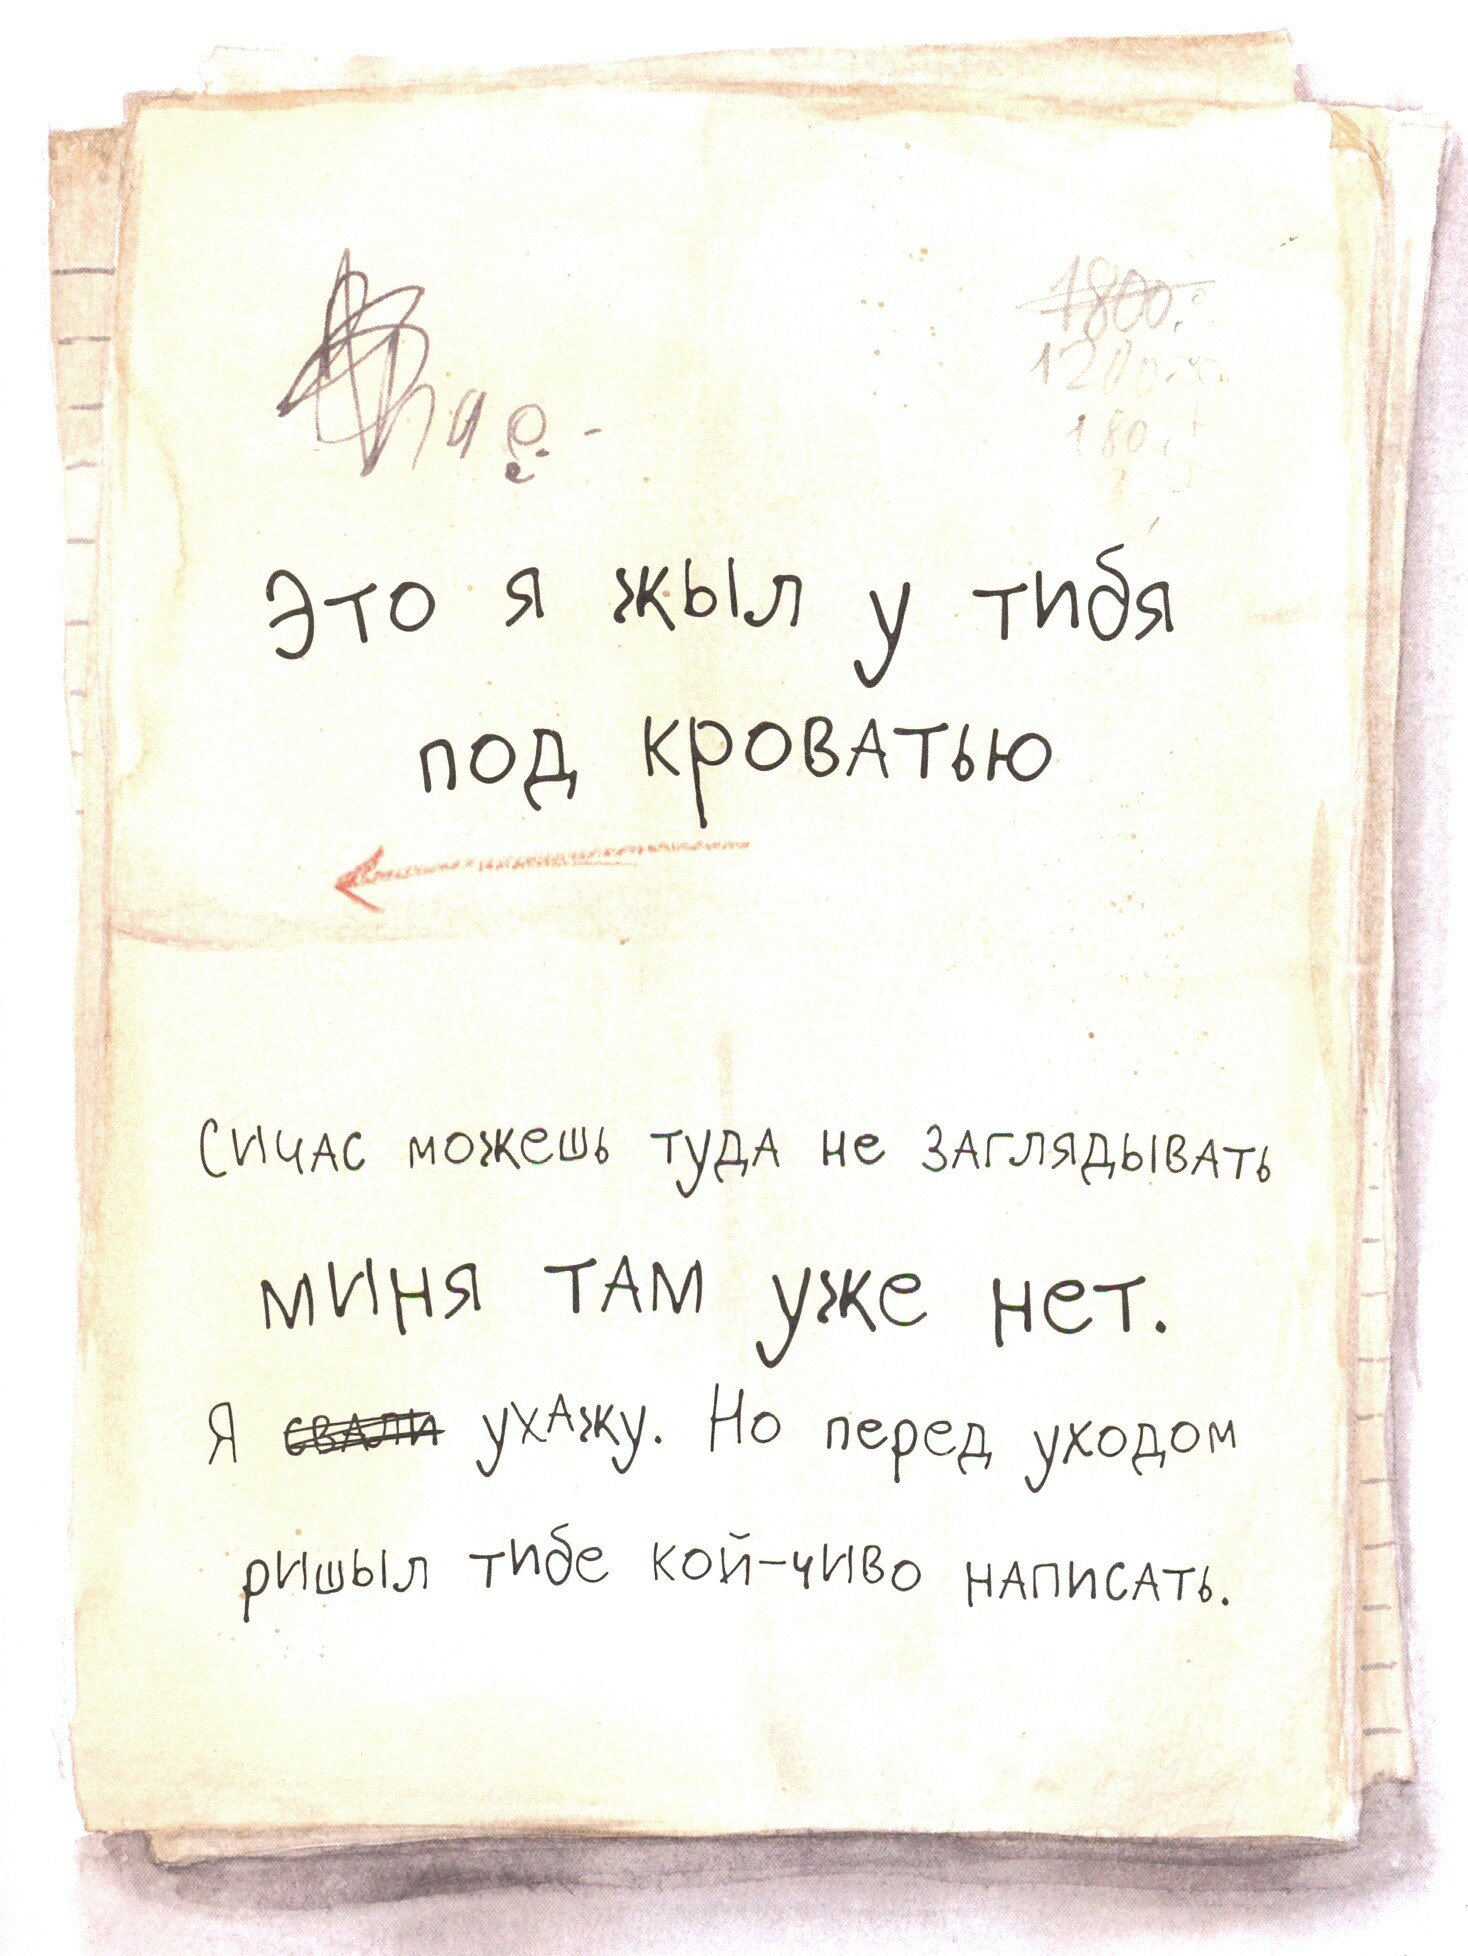 1800.
1200
180.
это я жыл у тибя
под кроватью
Сичас можешь туда не заглядывать
миня там уже нет.
Я свали ухажу. Но перед уходом
ришыл тибе кой-чиво написать.